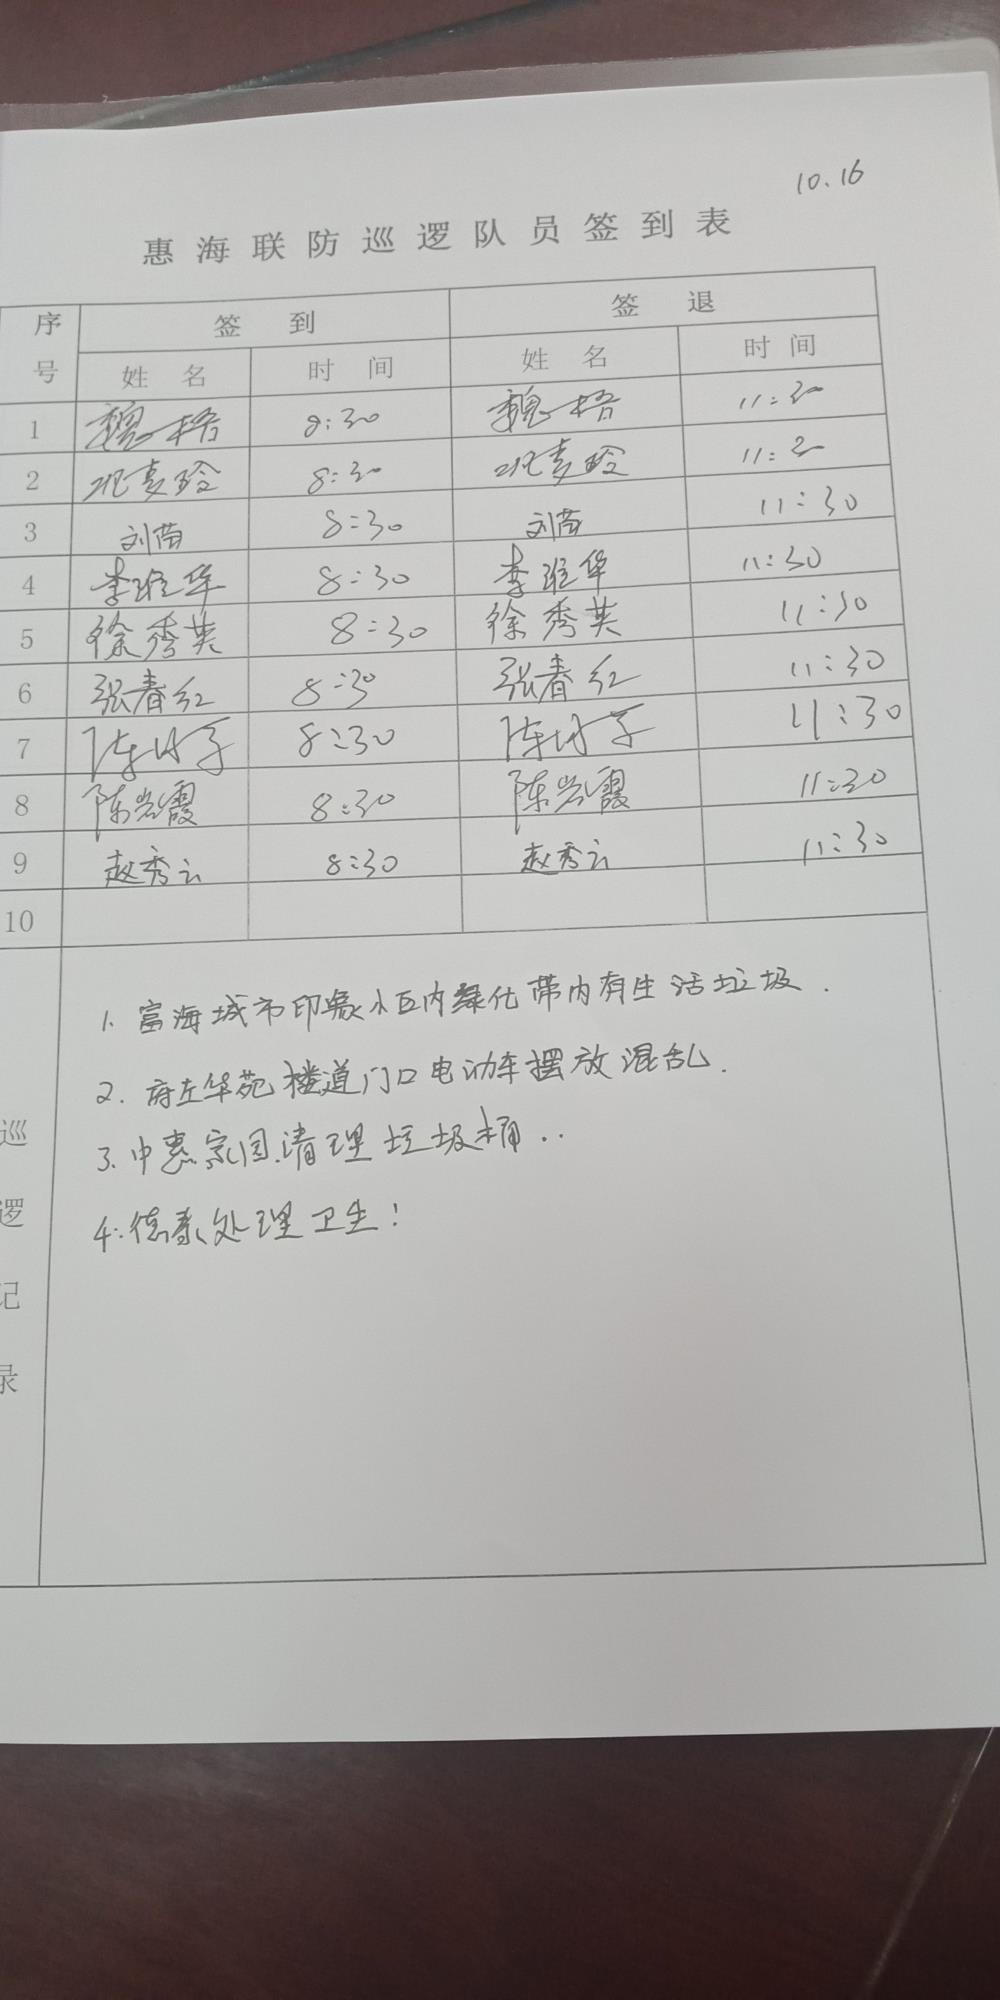 10.16
惠海联防巡逻队员签到表
序号 签到 签退
姓名 时间 姓名 时间
1 魏一梧 8:30 魏一梧 11:30
2 8:30 11:30
3 刘苗 8:30 刘苗 11:30
4 李维华 8:30 李维华 11:30
5 徐秀英 8:30 徐秀英 11:30
6 张春红 8:30 张春红 11:30
7 陈 8:30 陈 11:30
8 陈 霞 8:30 陈 霞 11:30
9 赵秀云 8:30 赵秀云 11:30
10
巡逻记录
1. 富海城市印象小区内绿化带内有生活垃圾.
2. 府左华苑楼道门口电动车摆放混乱.
3. 中惠家园清理垃圾桶..
4: 德泰处理卫生!